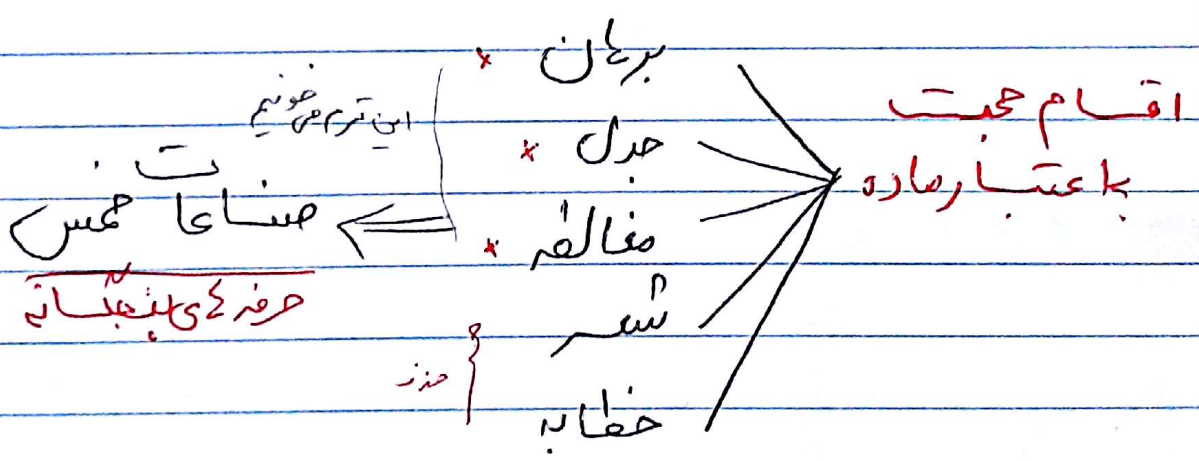 اقسام حجت
باعتبار ماده
برهان ×
جدل ×
مغالطه ×
شعر
خطابه
این ترم می‌خونیم
صناعات خمس
حرفه های پنجگانه
حذف